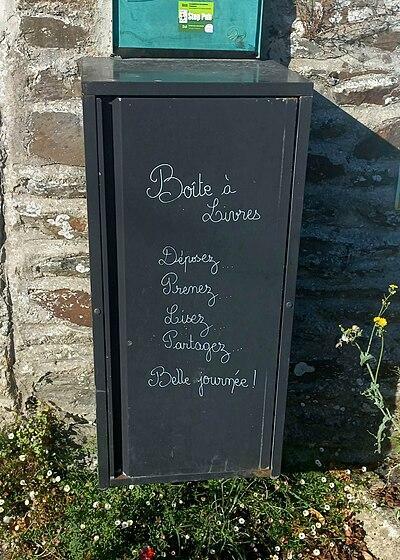 Stop Pub
Boîte à
Livres
Déposez...
Prenez...
Lisez...
Partagez...
Belle journée !